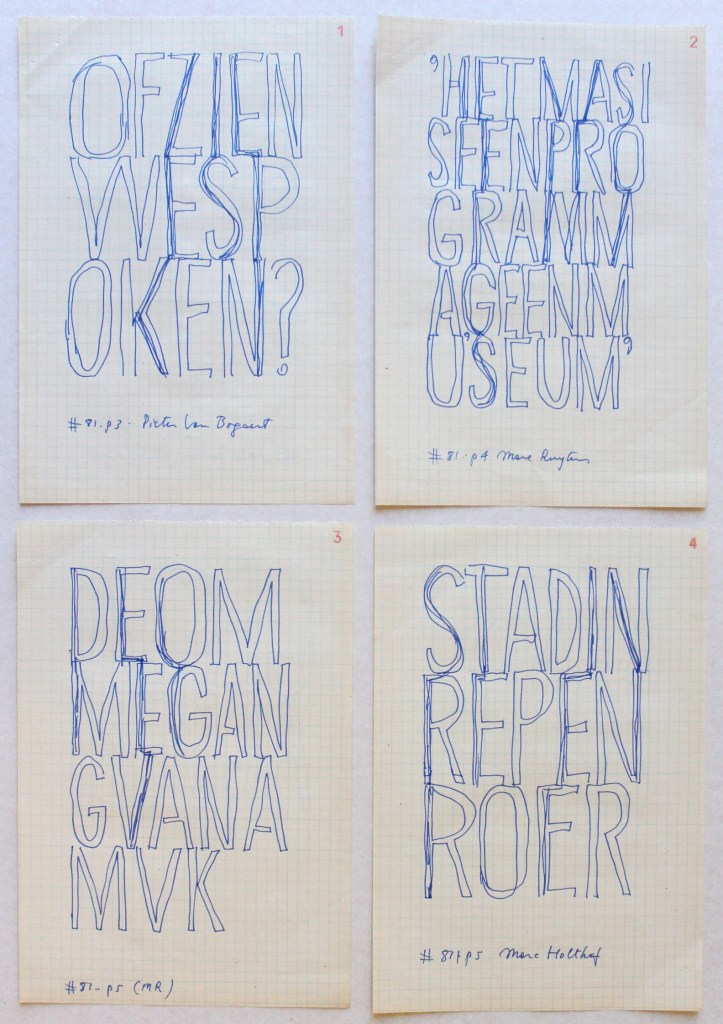 1
OFZIEN
WESP
OKEN?
#81-p3 - Pieter Van Bogaert
2
'HET MASI
SEENPRO
GRAMM
A,GEENM
USEUM'
#81-p4 Marc Ruyters
3
DEOM
MEGAN
GVANA
MVK
#81-p5 (MR)
4
STADIN
REPEN
ROER
#81-p5 Marc Holthof